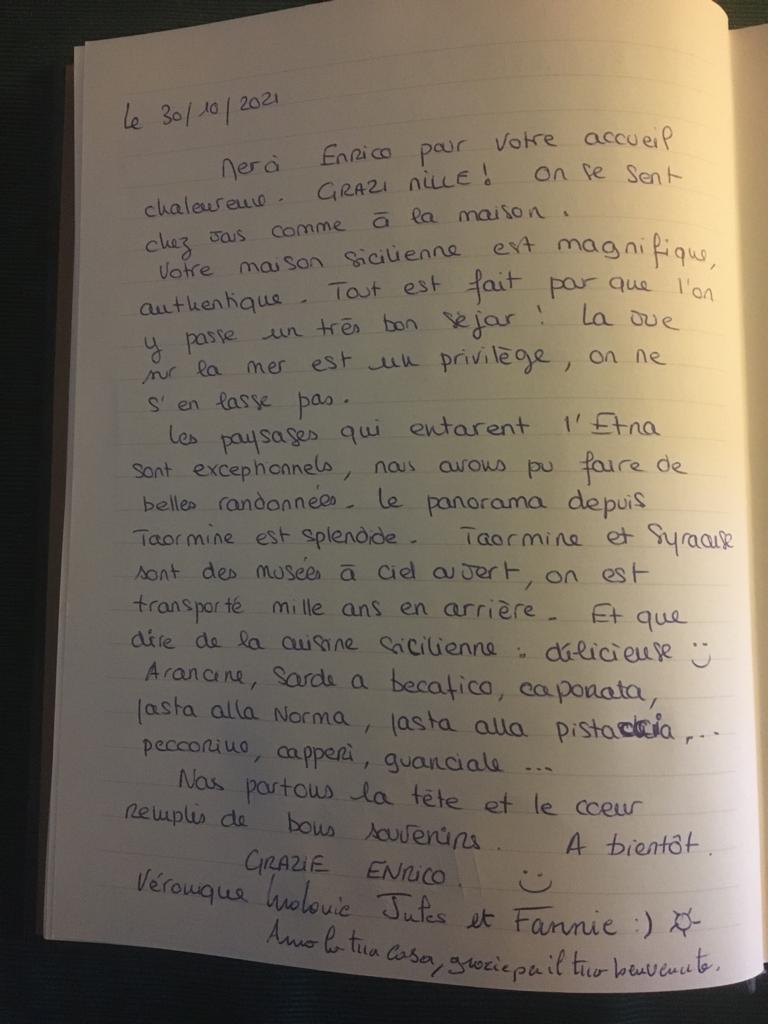 Le 30/10/2021
Merci Enrico pour votre accueil
chaleureux. GRAZI MILLE! On se sent
chez vous comme à la maison.
Votre maison sicilienne est magnifique,
authentique. Tout est fait pour que l'on
y passe un très bon séjour! La vue
sur la mer est un privilège, on ne
s'en lasse pas.
Les paysages qui entourent l'Etna
sont exceptionnels, nous avons pu faire de
belles randonnées. Le panorama depuis
Taormine est splendide. Taormine et Syracuse
sont des musées à ciel ouvert, on est
transporté mille ans en arrière. Et que
dire de la cuisine sicilienne : délicieuse :)
Arancine, sarde a becafico, caponata,
Pasta alla Norma, Pasta alla pistaccia,...
peccorino, capperi, guanciale ...
Nous partons la tête et le coeur
remplis de bons souvenirs. A bientôt.
GRAZIE ENRICO. :)
Véronique Ludovic Jules et Fannie :)
Amo la tua casa, grazie per il tuo benvenuto.